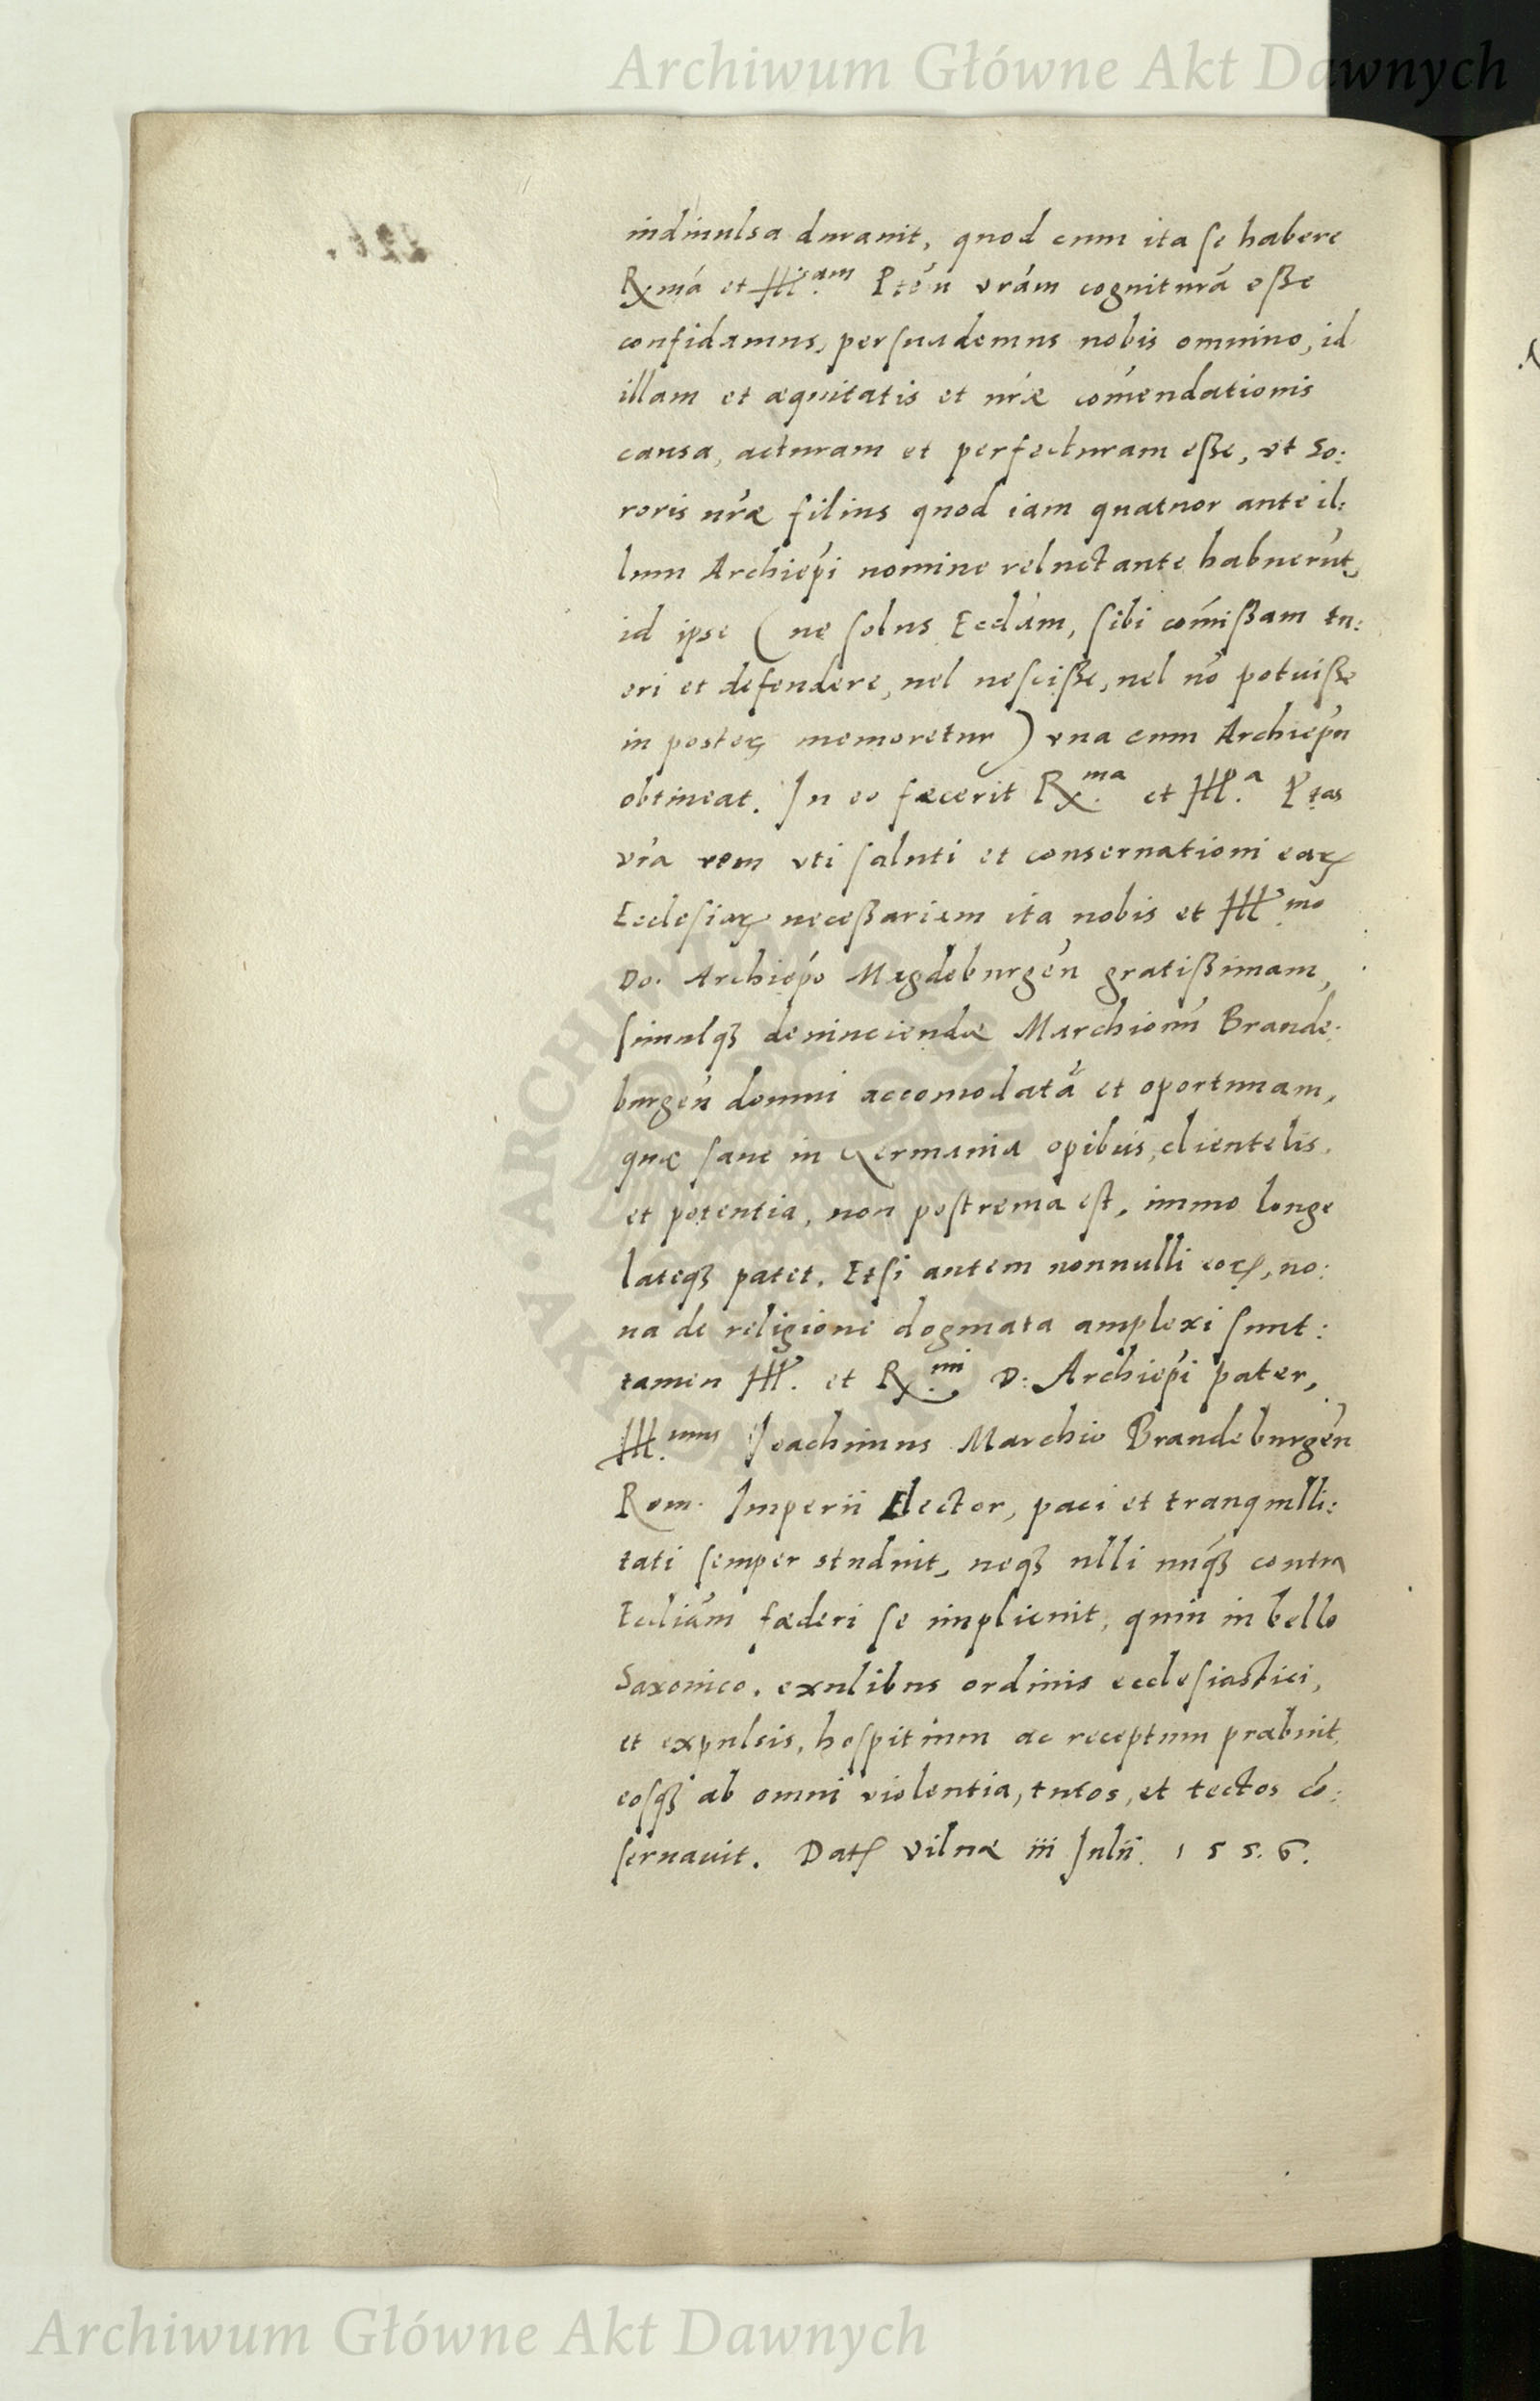 Archiwum Główne Akt Dawnych
indiuulsa durauit, quod cum ita se habere
Rx.mā et Ill.am Ptēn vrām cogniturā esße
confidamus, persuademus nobis omnino, id
illam et æquitatis et nræ comendationis
causa, acturam et perfecturam eße, vt So:
roris nræ filius quod iam quatuor ante il:
lum Archiepi nomine reluctante habuerūt,
id ipse ( ne solus Eccliām, sibi comißam tu:
eri et defendere, uel nescißße, uel nō potuiße
in posteꝝ memoretur ) vna cum Archiepū
obtineat. In eo fæcerit Rx.ma et Ill.a Ptas
vra rem vti saluti et conseruationi eaꝝ
Ecclesiaꝝ neceßariam ita nobis et Ill.mo
Do. Archiepo Magdeburgēn gratißimam,
simulqꝫ deuinciendæ Marchionū Brande:
burgēn domui accomodatā et oportunam,
quæ sane in Germania opibus, clientelis,
et potentia, non postrema est, immo longe
lateqꝫ patet. Etsi autem nonnulli eoꝝ, no:
ua de religione dogmata amplexi sunt:
tamen Ill. et Rx.mi D: Archiepi pater,
Ill.mus Joachimus Marchio Brandeburgēn
Rom. Imperii Elector, paci et tranquilli:
tati semper studuit, neqꝫ ulli unqꝫ contra
Eccliām fæderi se implicuit, quin in bello
Saxonico, exulibus ordinis ecclesiastici,
et expulsis, hospitium ac receptum præbuit,
eosqꝫ ab omni violentia, tutos, et tectos cō:
seruauit. Datꝭ Vilnæ iii Julii. 1 5 5. 6.
ARCHIWUM GŁÓWNE AKT DAWNYCH
Archiwum Główne Akt Dawnych